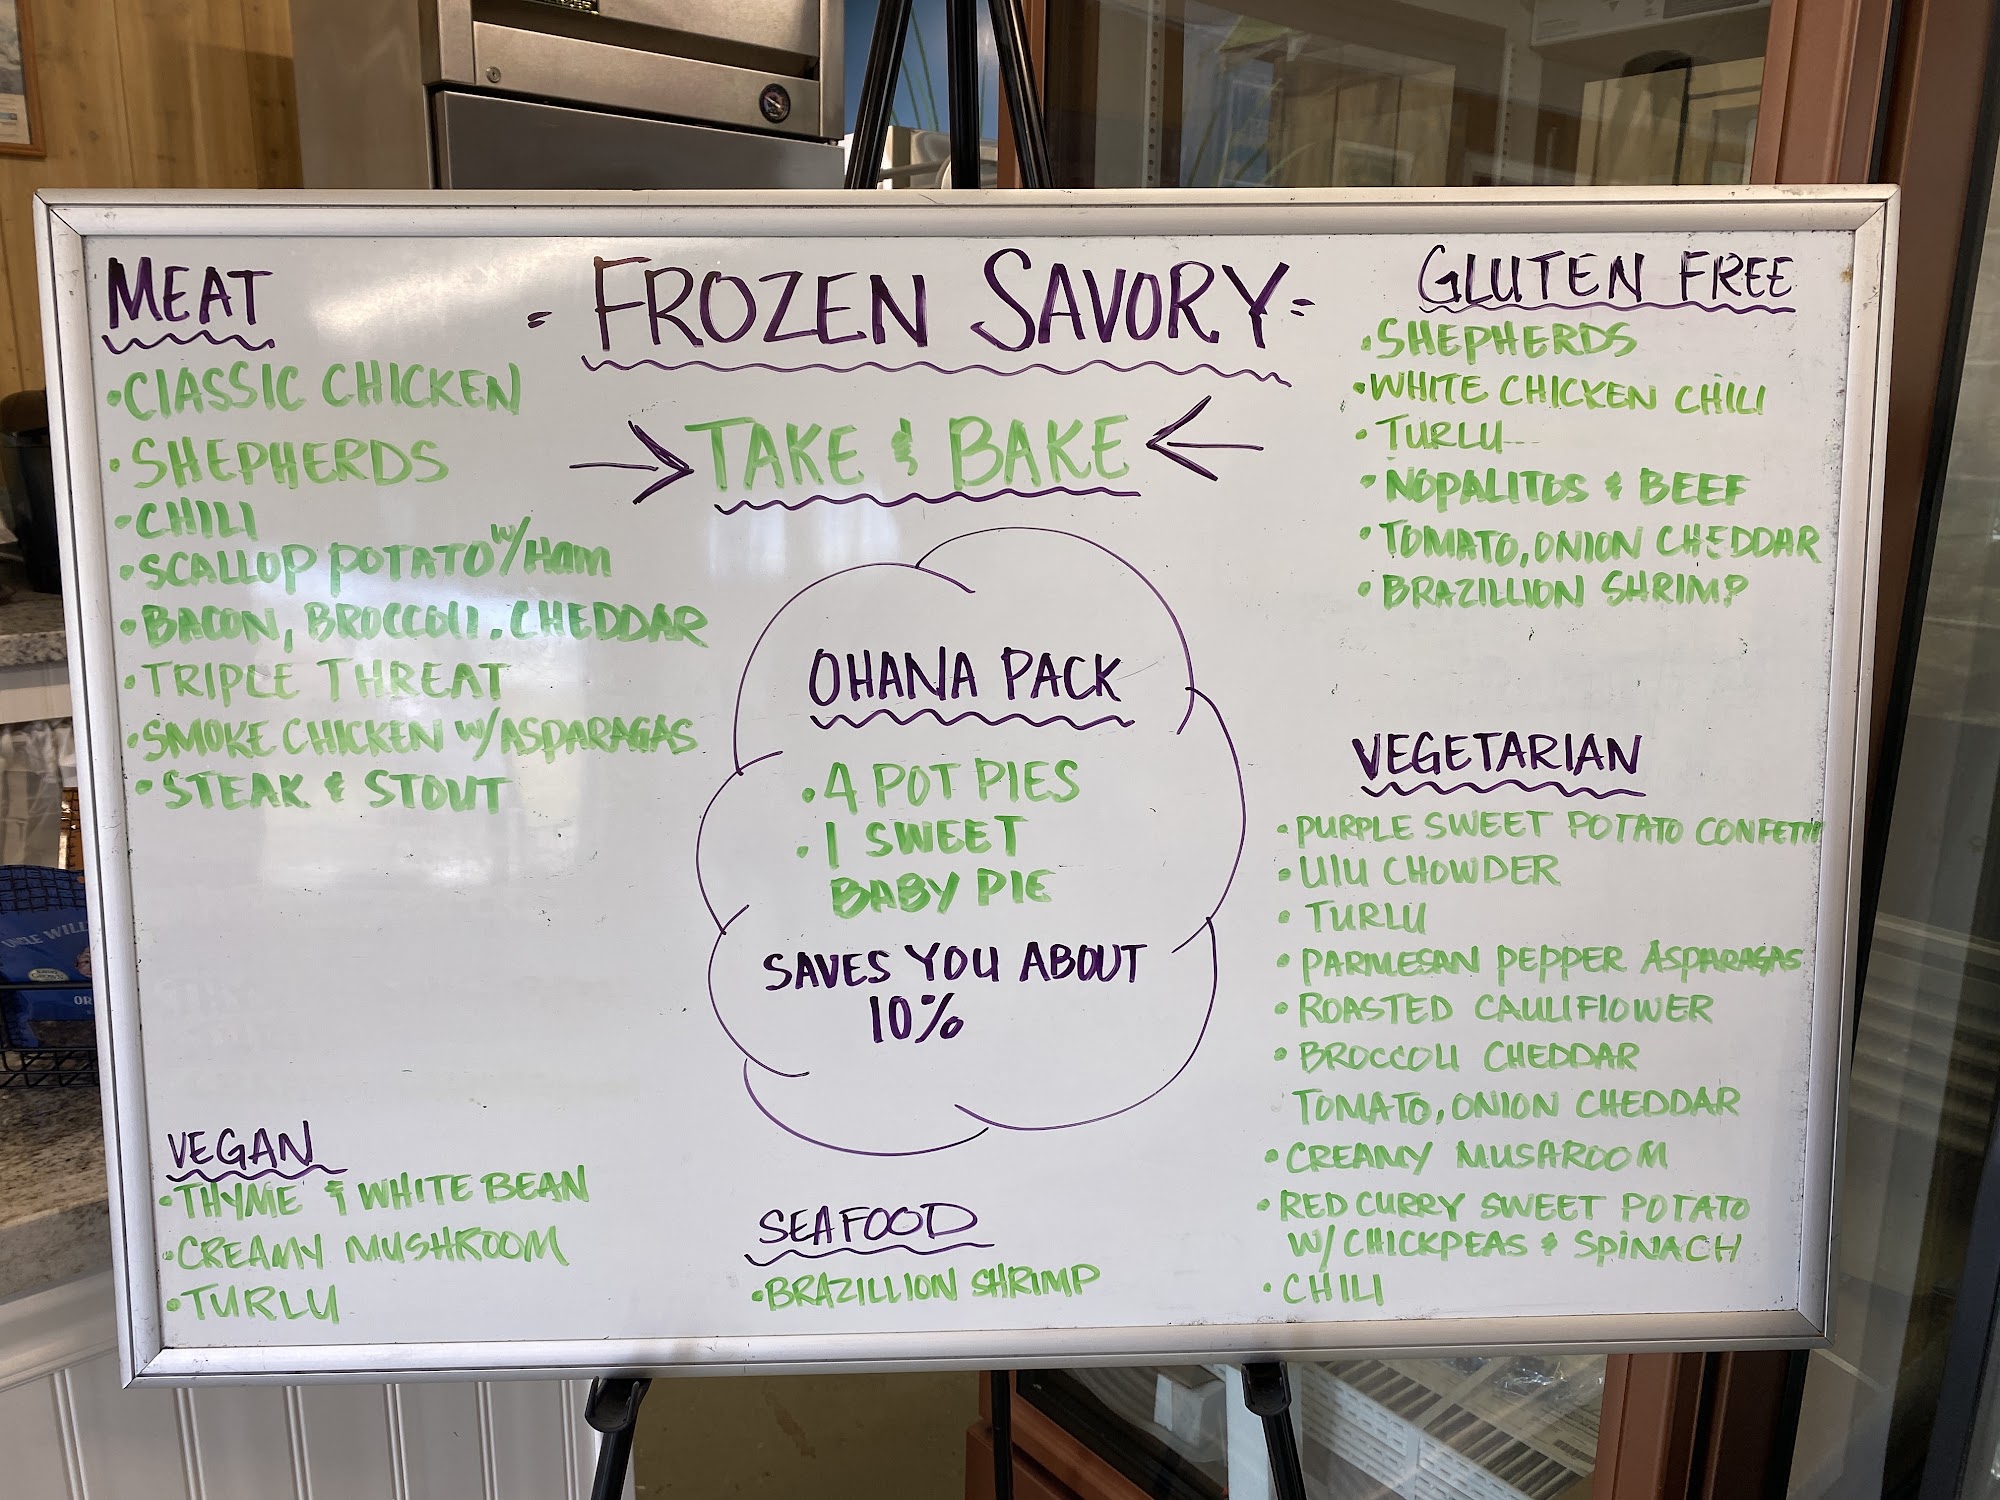 MEAT
• CLASSIC CHICKEN
• SHEPHERDS
• CHILI
• SCALLOP POTATO w/HAM
• BACON, BROCCOLI, CHEDDAR
• TRIPLE THREAT
• SMOKE CHICKEN W/ASPARAGAS
• STEAK & STOUT
VEGAN
• THYME & WHITE BEAN
• CREAMY MUSHROOM
• TURLU
- FROZEN SAVORY -
→ TAKE & BAKE ←
OHANA PACK
• 4 POT PIES
• 1 SWEET
BABY PIE
SAVES YOU ABOUT
10%
SEAFOOD
• BRAZILLION SHRIMP
GLUTEN FREE
• SHEPHERDS
• WHITE CHICKEN CHILI
• TURLU
• NOPALITOS & BEEF
• TOMATO, ONION CHEDDAR
• BRAZILLION SHRIMP
VEGETARIAN
• PURPLE SWEET POTATO CONFETTI
• ULU CHOWDER
• TURLU
• PARMESAN PEPPER ASPARAGAS
• ROASTED CAULIFLOWER
• BROCCOLI CHEDDAR
TOMATO, ONION CHEDDAR
• CREAMY MUSHROOM
• RED CURRY SWEET POTATO
W/ CHICKPEAS & SPINACH
• CHILI
UNCLE WILL
OR